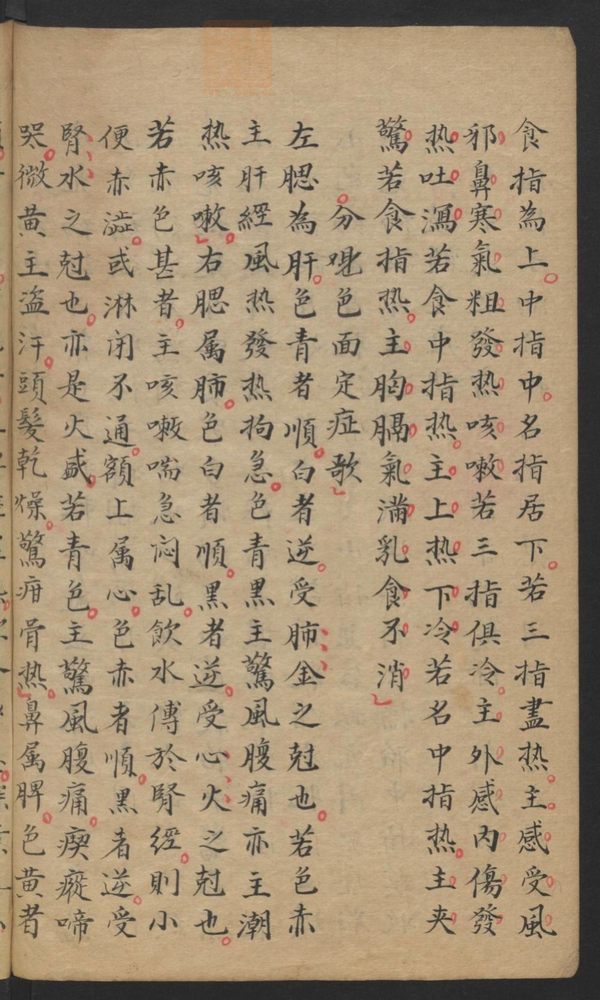 食指為上中指中名指居下若三指盡热主感受風
邪鼻寒氣粗發热咳嗽若三指俱冷主外感内傷發
热吐瀉若食中指热主上热下冷若名中指热主夹
驚若食指热主胸膈氣滿乳食不消
分覌色面定症歌
左腮為肝色青者順白者逆受肺金之尅也若色赤
主肝經風热發热拘急色青黑主驚風腹痛亦主潮
热咳嗽右腮属肺色白者順黑者逆受心火之尅也
若赤色甚者主咳嗽喘急闷乱飲水傳於腎經則小
便赤澁或淋闭不通額上属心色赤者順黑者逆受
腎水之尅也亦是火盛若青色主驚風腹痛瘈瘲啼
哭微黄主盗汗頭髮乾燥驚疳骨热鼻属脾色黄者